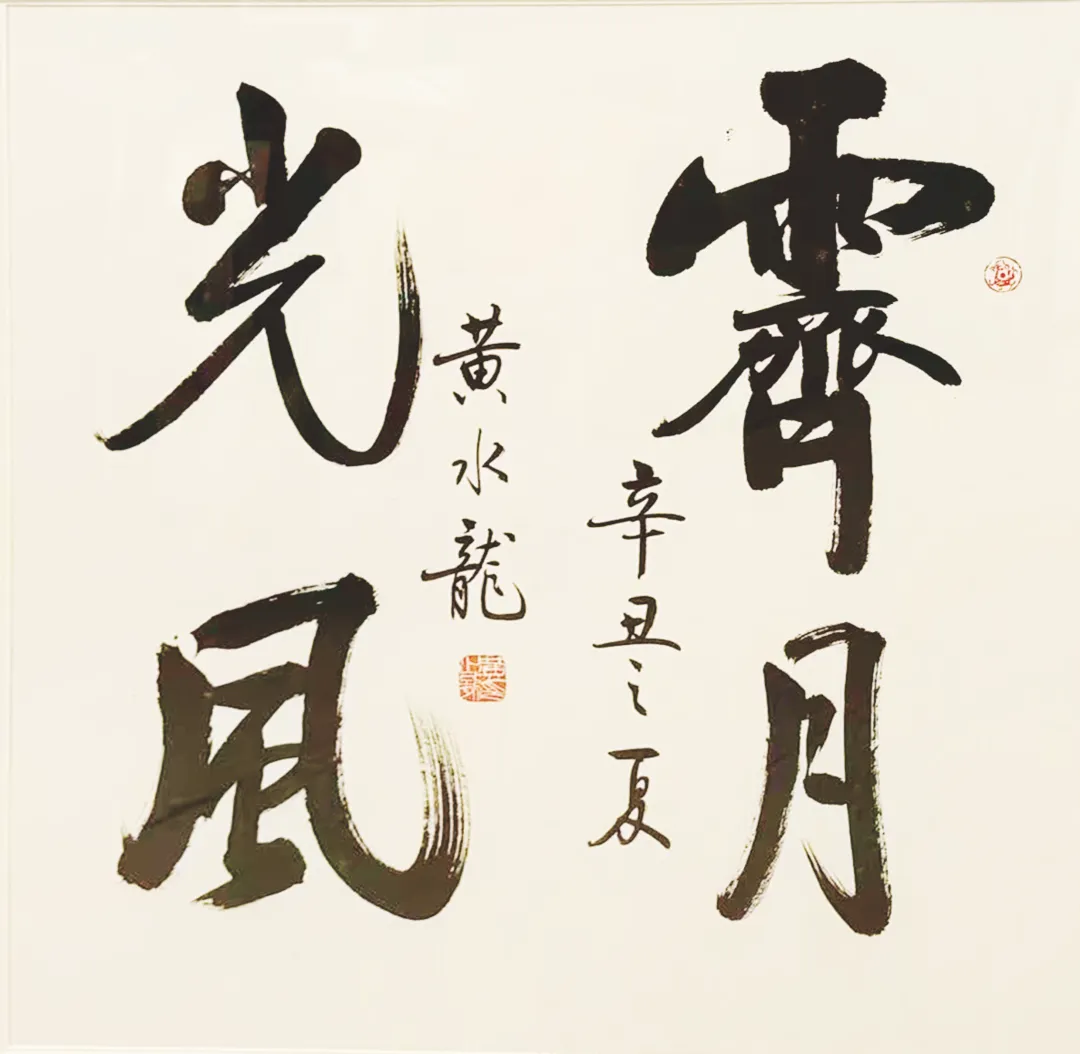 霽月
辛丑之夏
光風
黄水龍